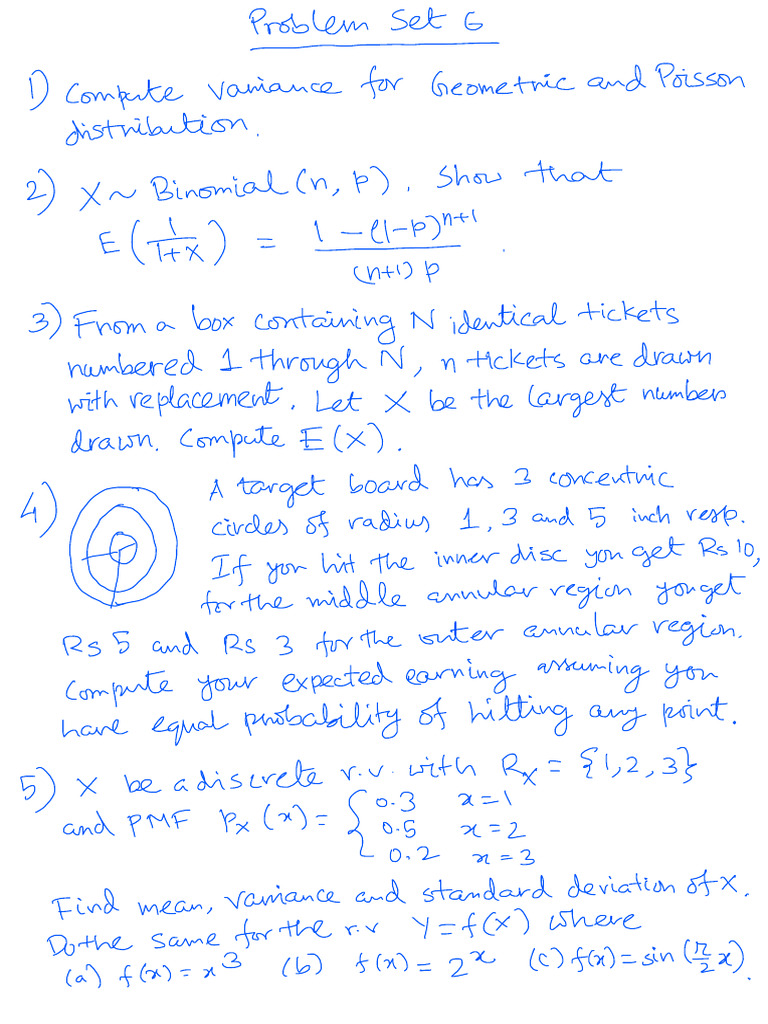 Problem Set 6
1) Compute variance for Geometric and Poisson
distribution.
2) X ~ Binomial (n, p). Show that
E(1/(1+X)) = (1 - (1-p)^(n+1))/((n+1) p).
3) From a box containing N identical tickets
numbered 1 through N, n tickets are drawn
with replacement. Let X be the largest number
drawn. Compute E(X).
4) A target board has 3 concentric
circles of radius 1, 3 and 5 inch resp.
If you hit the inner disc you get Rs 10,
for the middle annular region you get
Rs 5 and Rs 3 for the outer annular region.
Compute your expected earning assuming you
have equal probability of hitting any point.
5) X be a discrete r.v. with R_X = {1, 2, 3}
and PMF P_X(x) = { 0.3 x=1
0.5 x=2
0.2 x=3
Find mean, variance and standard deviation of X.
Do the same for the r.v Y = f(X) where
(a) f(x) = x^3 (b) f(x) = 2^x (c) f(x) = sin(π/2 x).